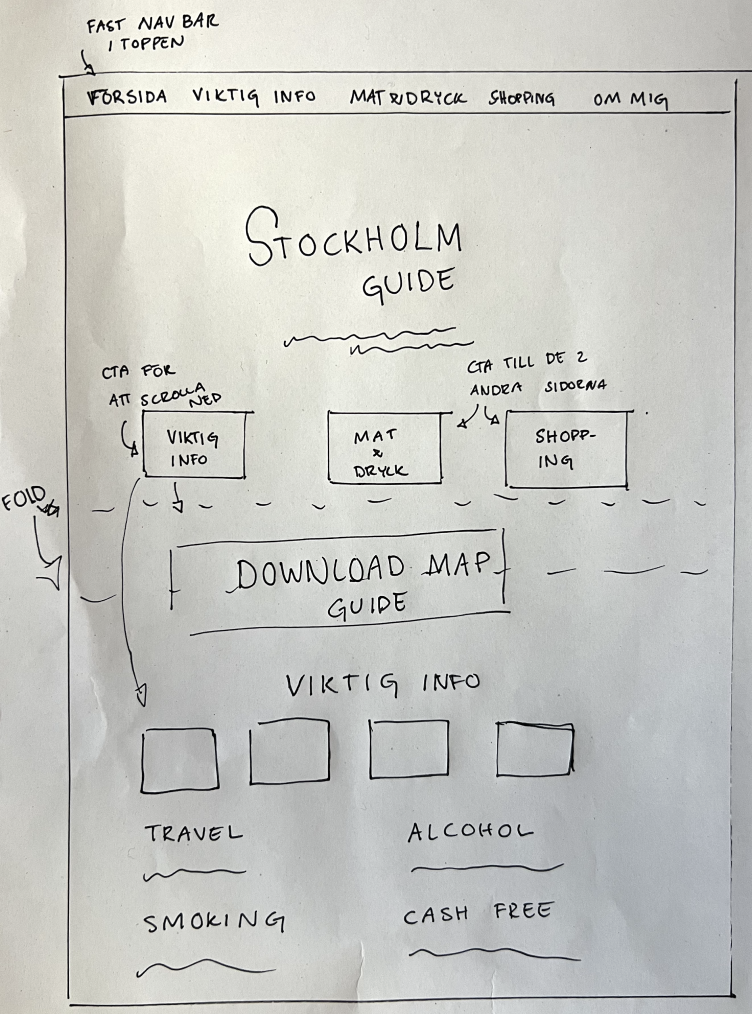 FAST NAV BAR
I TOPPEN
FÖRSIDA VIKTIG INFO MAT & DRYCK SHOPPING OM MIG
STOCKHOLM
GUIDE
CTA FÖR
ATT SCROLLA
NED
CTA TILL DE 2
ANDRA SIDORNA
VIKTIG
INFO
MAT
&
DRYCK
SHOPP-
ING
FOLD
DOWNLOAD MAP
GUIDE
VIKTIG INFO
TRAVEL
ALCOHOL
SMOKING
CASH FREE